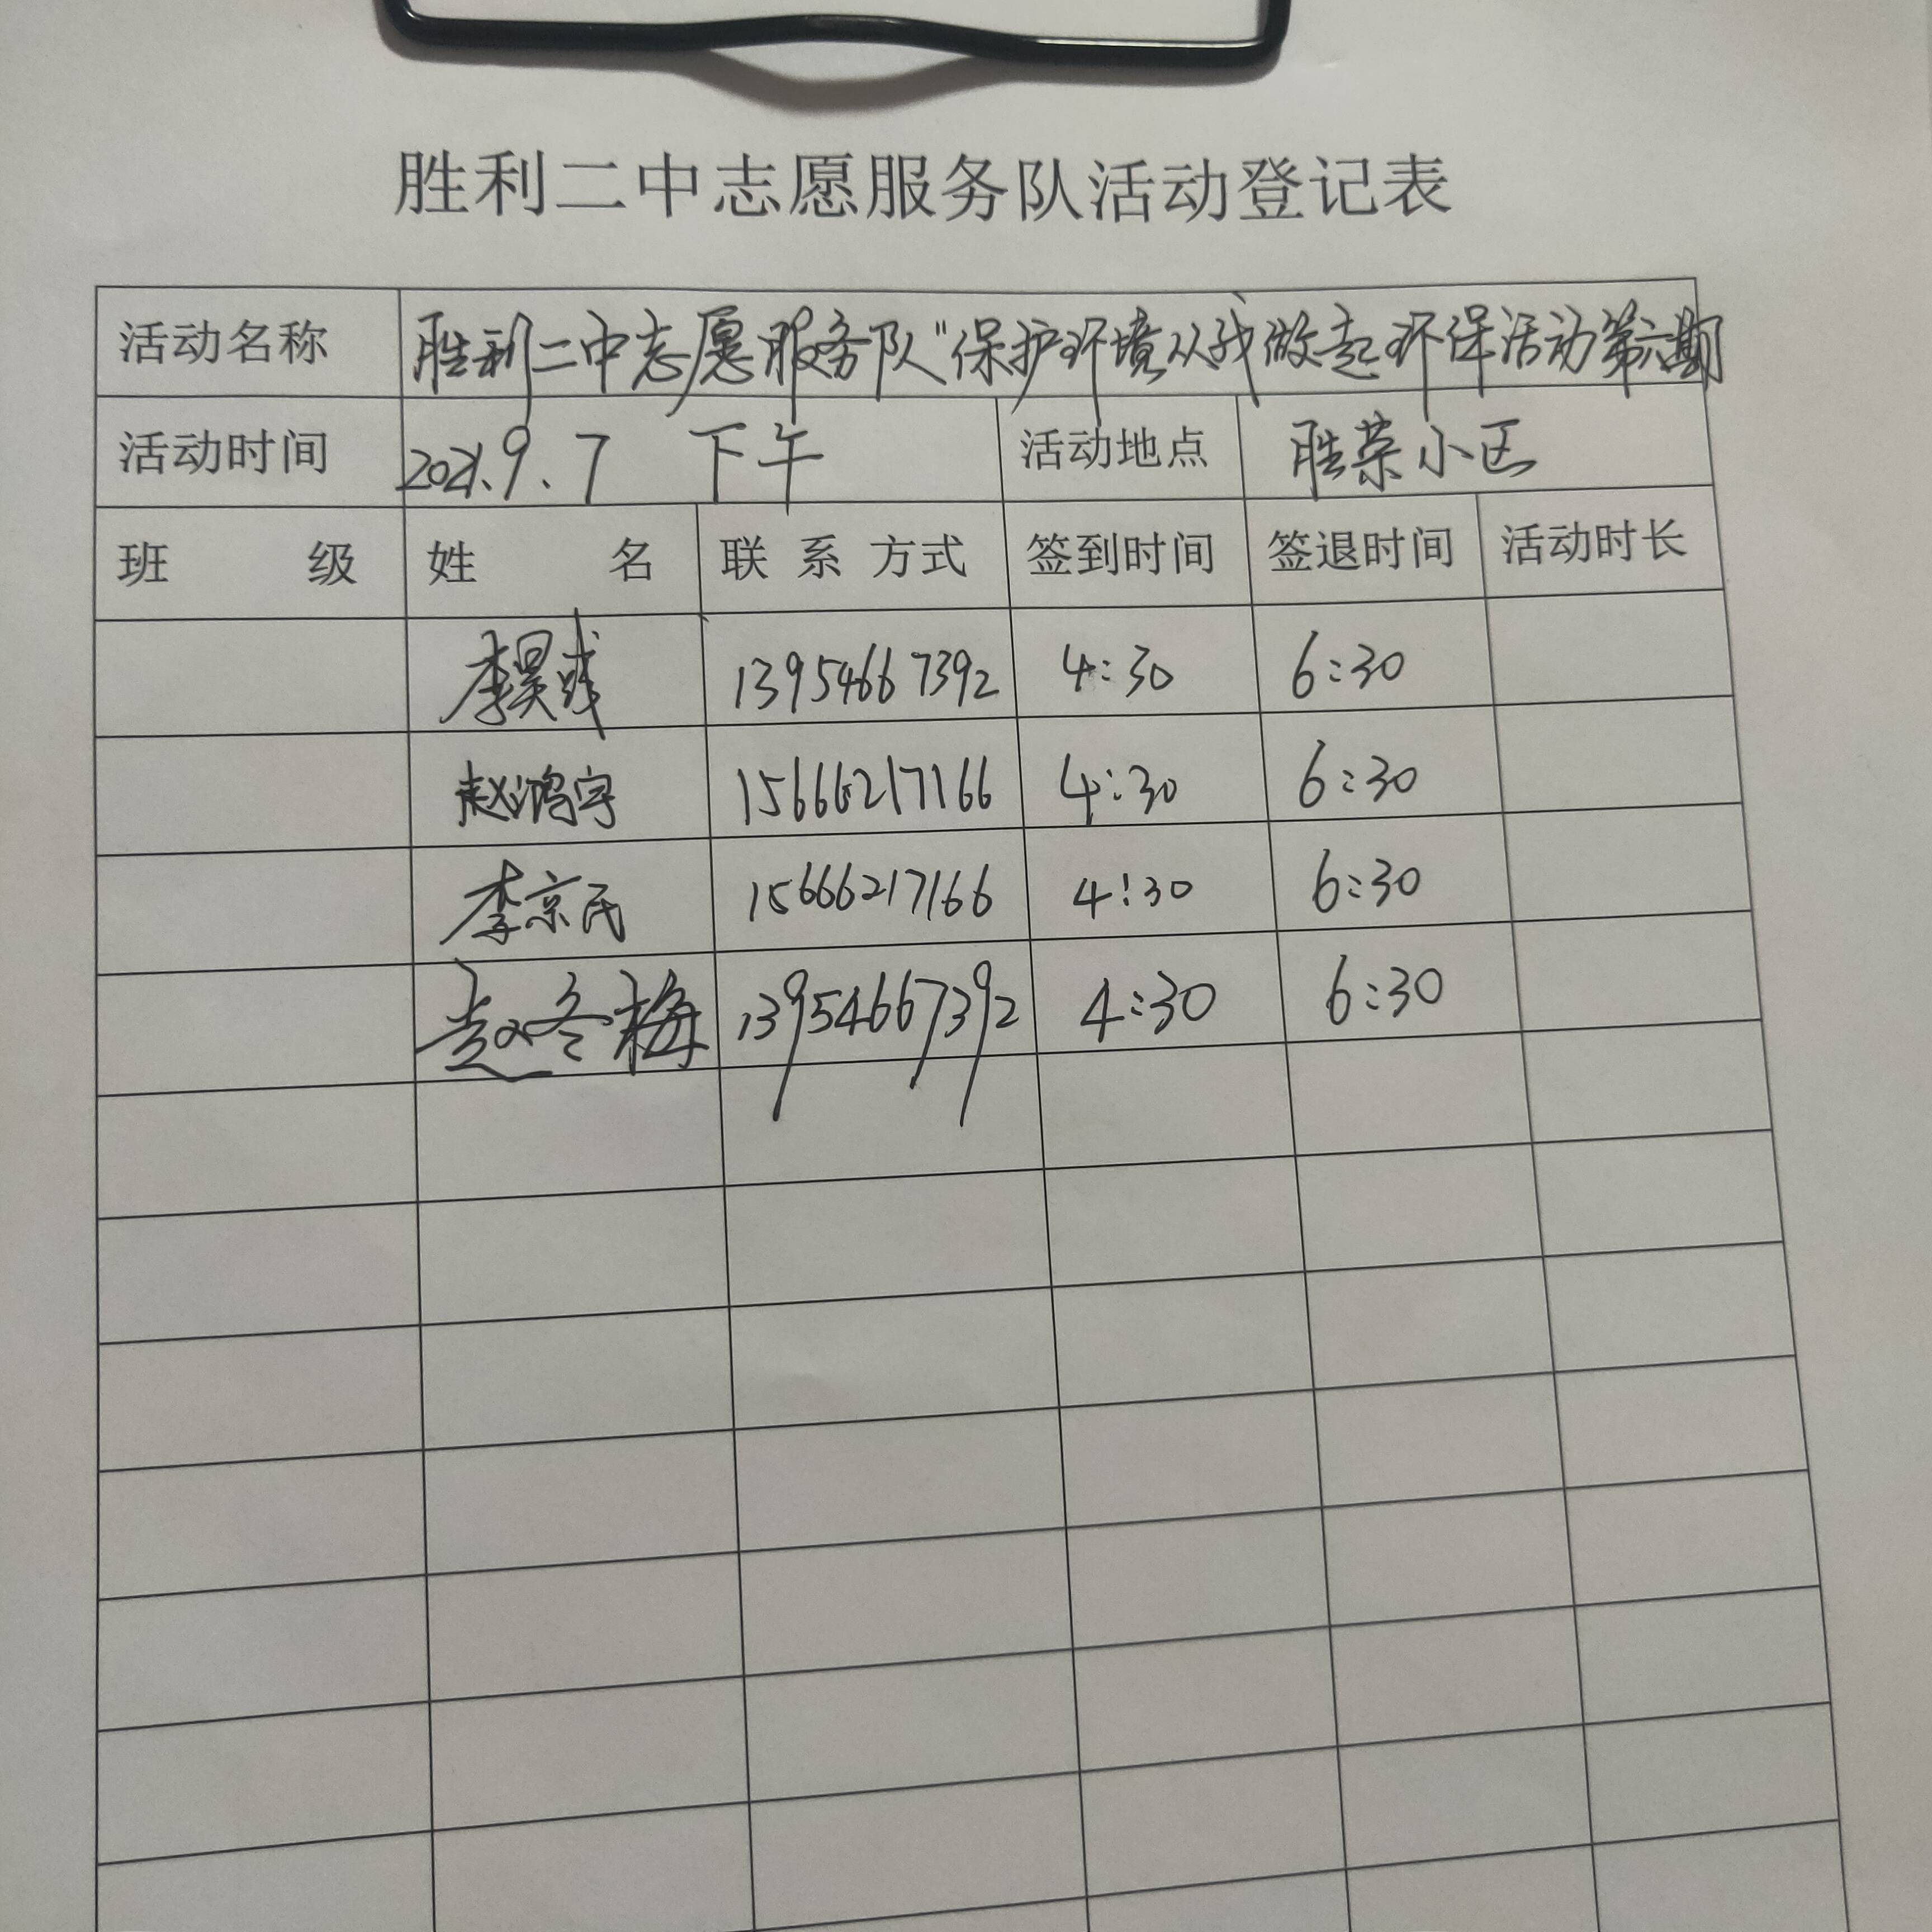 胜利二中志愿服务队活动登记表
活动名称 胜利二中志愿服务队"保护环境从我做起环保活动第六期
活动时间 2021.9.7 下午 活动地点 胜荣小区
班 级 姓 名 联系方式 签到时间 签退时间 活动时长
李昊 13954667392 4:30 6:30
赵鸿宇 15666217166 4:30 6:30
李京民 15666217166 4:30 6:30
赵冬梅 13954667392 4:30 6:30